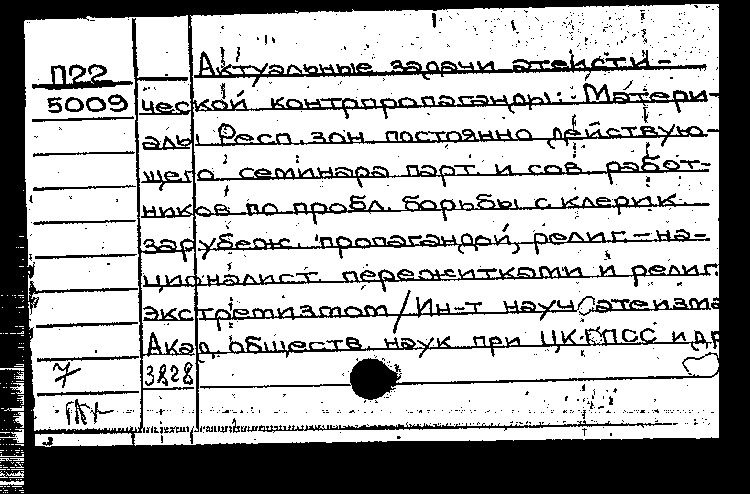 П22 Актуальные задачи атеисти-
5009 ческой контрпропаганды: Матери-
алы Респ. зон постоянно действую-
щего семинара парт. и сов. работ-
ников по пробл. борьбы с клерик.
зарубеж. пропагандой, религ.-на-
ционалист. пережитками и религ.
экстремизмом / Ин-т науч. атеизма
Акад. обществ. наук при ЦК КПСС и др
7 3828